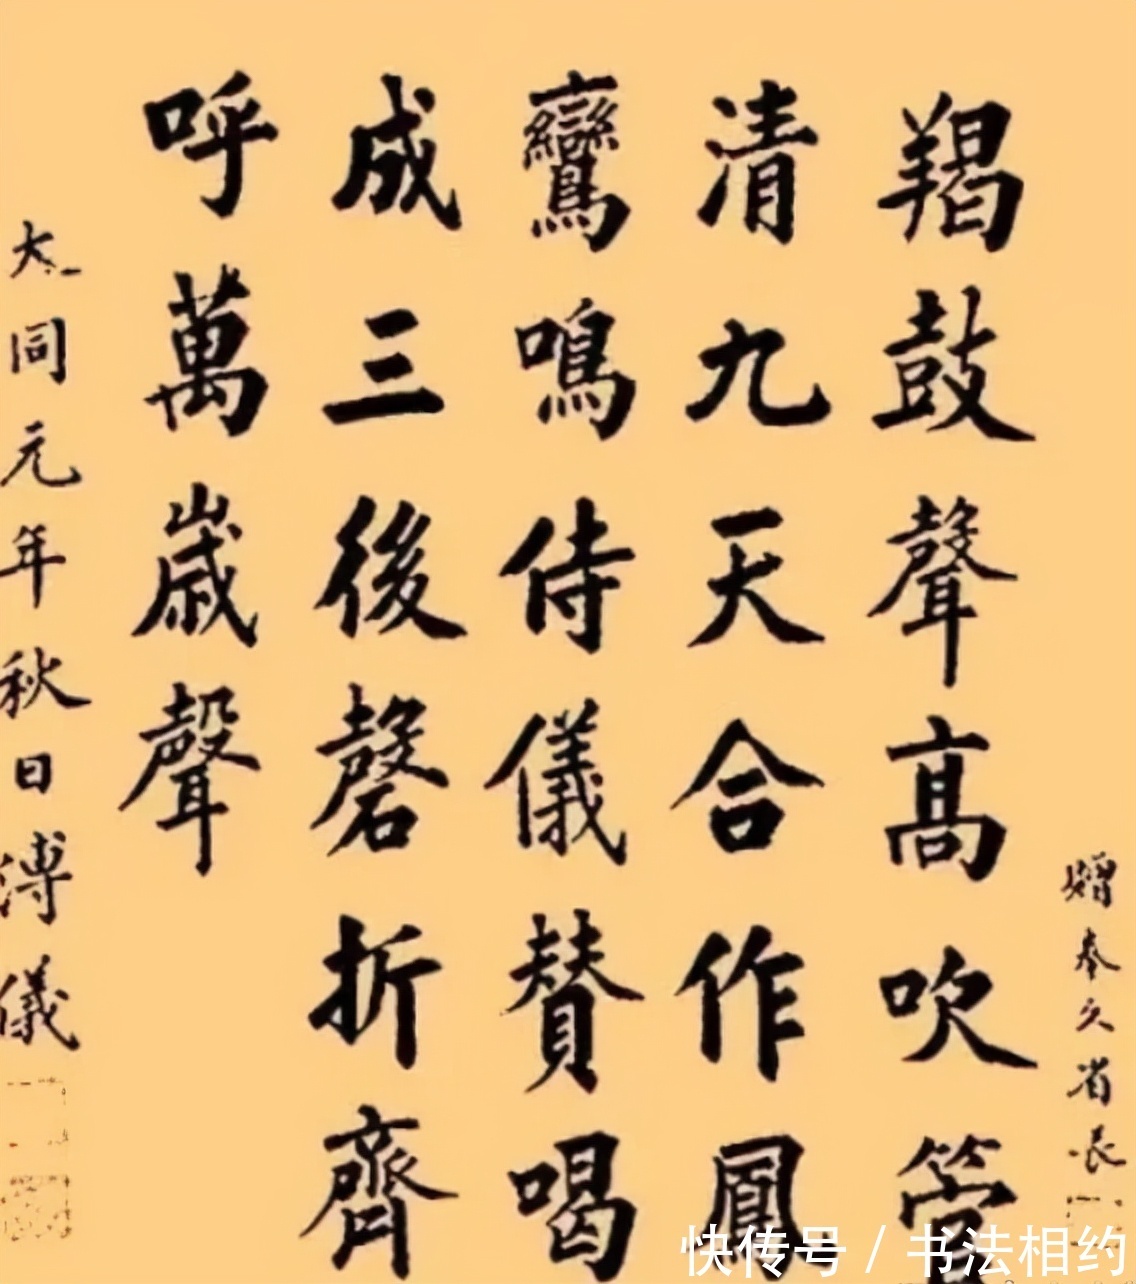 贈奉久省長
羯鼓聲高吹管
清九天合作鳳
鸞鳴侍儀贊喝
成三後磬折齊
呼萬歲聲
大同元年秋日溥儀
快传号/书法相约